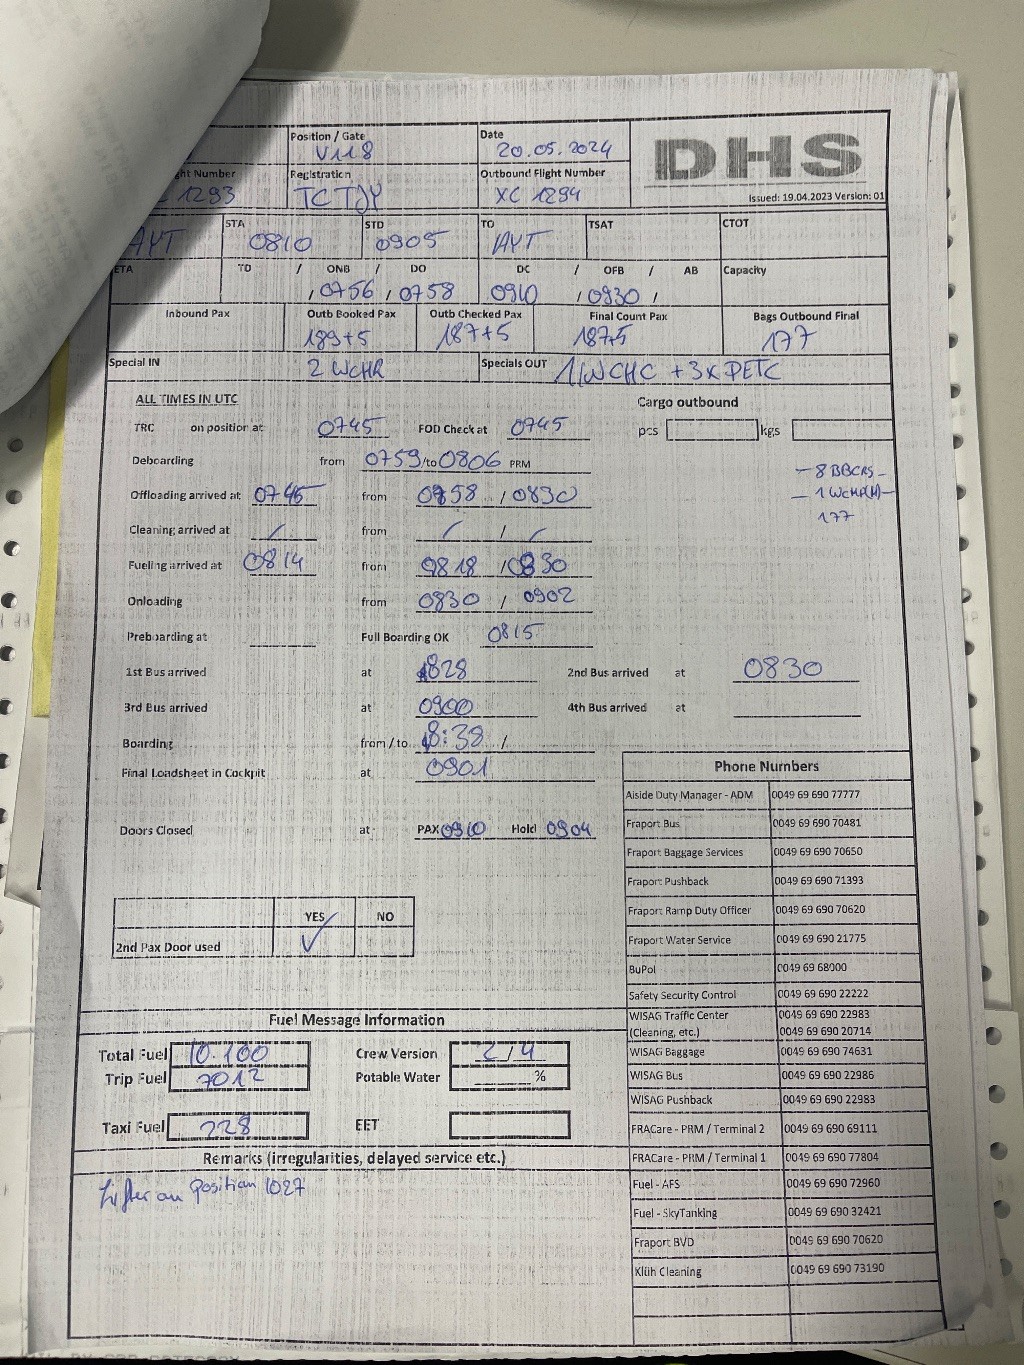 Position / Gate
V118
Date
20.05.2024
DHS
ht Number
1293
Registration
TC TJY
Outbound Flight Number
XC 1294
Issued: 19.04.2023 Version: 01
AYT
STA
0810
STD
0905
TO
AYT
TSAT
CTOT
ETA
TD / ONB / DO
/ 0756 / 0758
DC / OFB / AB
0910 / 0930 /
Capacity
Inbound Pax
Outb Booked Pax
189+5
Outb Checked Pax
187+5
Final Count Pax
187+5
Bags Outbound Final
177
Special IN
2 WCHR
Specials OUT
1 WCHC + 3x PETC
ALL TIMES IN UTC
Cargo outbound
TRC on position at 0745 FOD Check at 0745
pcs kgs
Deboarding from 0759 /to 0806 PRM
- 8 BBCRS -
Offloading arrived at 0745 from 0758 / 0830
177
Cleaning arrived at / from / / /
Fueling arrived at 0814 from 0818 / 0830
Onloading from 0830 / 0902
Preboarding at Full Boarding OK 0815
1st Bus arrived at 828 2nd Bus arrived at 0830
3rd Bus arrived at 0900 4th Bus arrived at
Boarding from / to 8:38 /
Final Loadsheet in Cockpit at 0901
Doors Closed at PAX 0910 Hold 0904
YES NO
2nd Pax Door used ✓
Phone Numbers
Aiside Duty Manager - ADM 0049 69 690 77777
Fraport Bus 0049 69 690 70481
Fraport Baggage Services 0049 69 690 70650
Fraport Pushback 0049 69 690 71393
Fraport Ramp Duty Officer 0049 69 690 70620
Fraport Water Service 0049 69 690 21775
BuPol 0049 69 68000
Safety Security Control 0049 69 690 22222
WISAG Traffic Center 0049 69 690 22983
(Cleaning, etc.) 0049 69 690 20714
WISAG Baggage 0049 69 690 74631
WISAG Bus 0049 69 690 22986
WISAG Pushback 0049 69 690 22983
FRACare - PRM / Terminal 2 0049 69 690 69111
FRACare - PRM / Terminal 1 0049 69 690 77804
Fuel - AFS 0049 69 690 72960
Fuel - SkyTanking 0049 69 690 32421
Fraport BVD 0049 69 690 70620
Klüh Cleaning 0049 69 690 73190
Fuel Message Information
Total Fuel 10.100 Crew Version 2/4
Trip Fuel 7012 Potable Water %
Taxi Fuel 228 EET
Remarks (irregularities, delayed service etc.)
Lifter on Position 1027